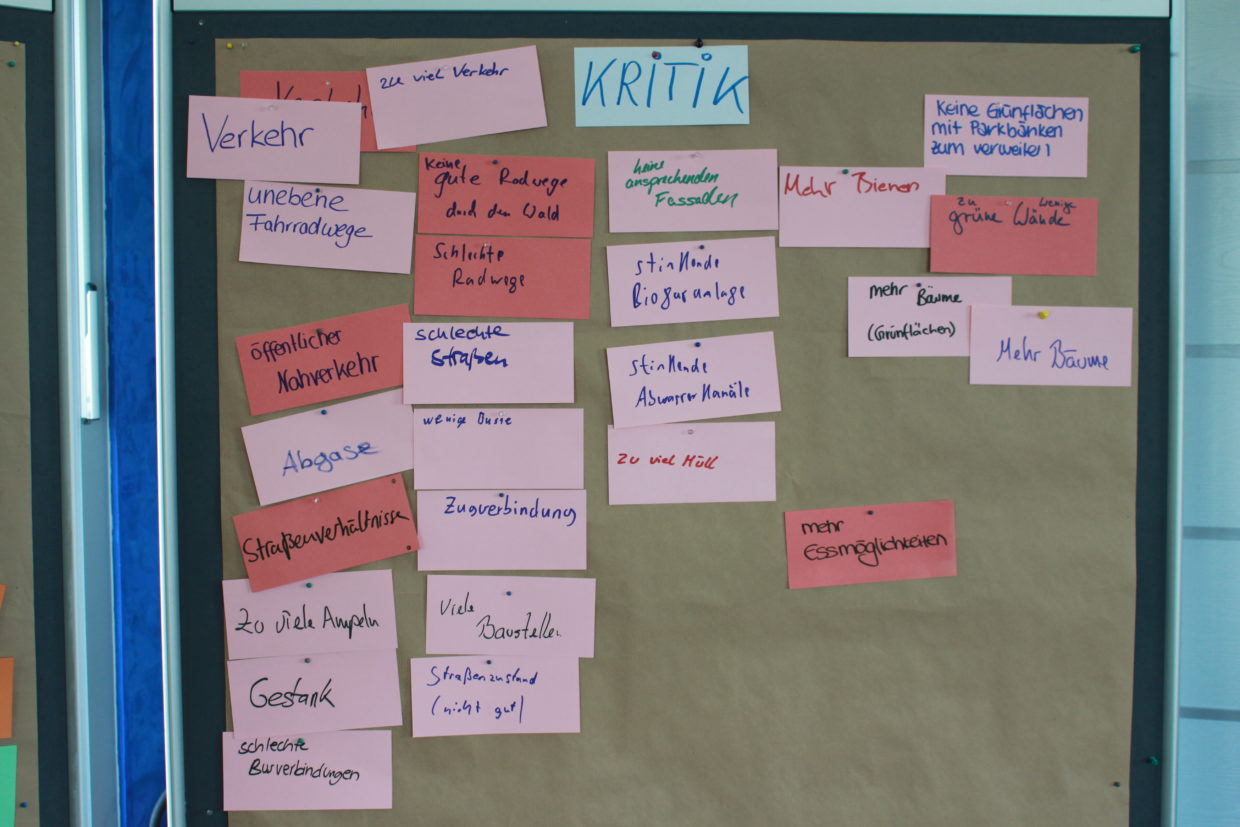 KRITIK
zu viel Verkehr
Verkehr
unebene
Fahrradwege
öffentlicher
Nahverkehr
Abgase
Straßenverhältnisse
Zu viele Ampeln
Gestank
schlechte
Busverbindungen
Keine
gute Radwege
durch den Wald
Schlechte
Radwege
schlechte
Straßen
wenige Busse
Zugverbindung
Viele
Baustellen
Straßenzustand
(nicht gut)
keine
ansprechenden
Fassaden
stinkende
Biogasanlage
stinkende
Abwasserkanäle
zu viel Müll
Mehr Bienen
Keine Grünflächen
mit Parkbänken
zum verweilen
zu wenige
grüne Wände
mehr Bäume
(Grünflächen)
Mehr Bäume
mehr
Essmöglichkeiten